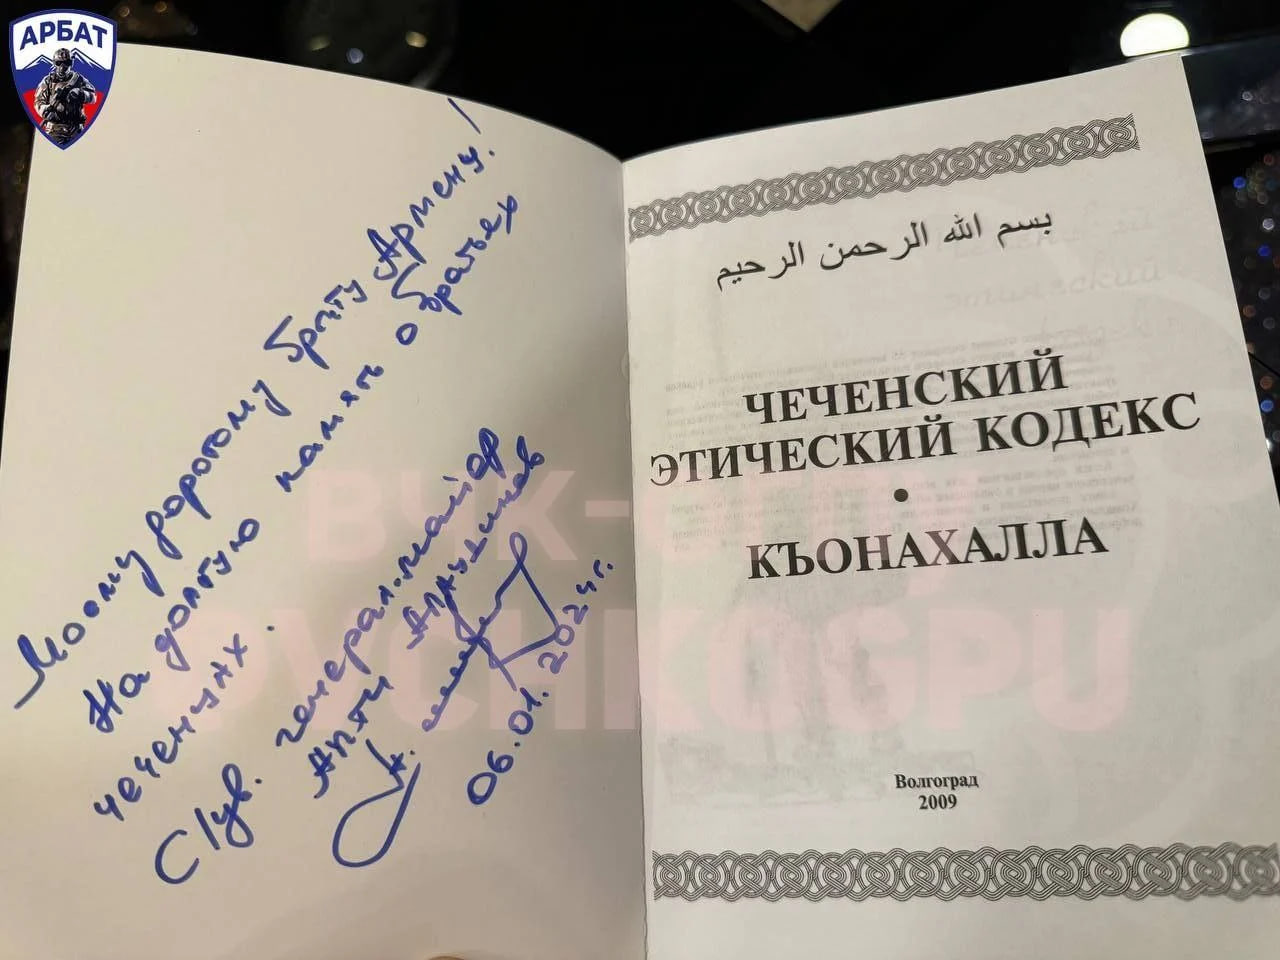 АРБАТ
Моему дорогому брату Армену!
На долгую память о братьях
чеченцах.
С/ув. генерал-майор
Апти Алаудинов
06.01.2024г.
بسم الله الرحمن الرحيم
ЧЕЧЕНСКИЙ
ЭТИЧЕСКИЙ КОДЕКС
•
КЪОНАХАЛЛА
Волгоград
2009
ВЧК-ОГПУ
RUCHKOGPU